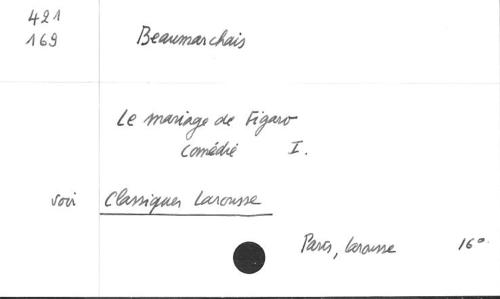 421
169 Beaumarchais
Le mariage de Figaro
comédie I.
voir Classiques Larousse
Paris, Larousse 16°